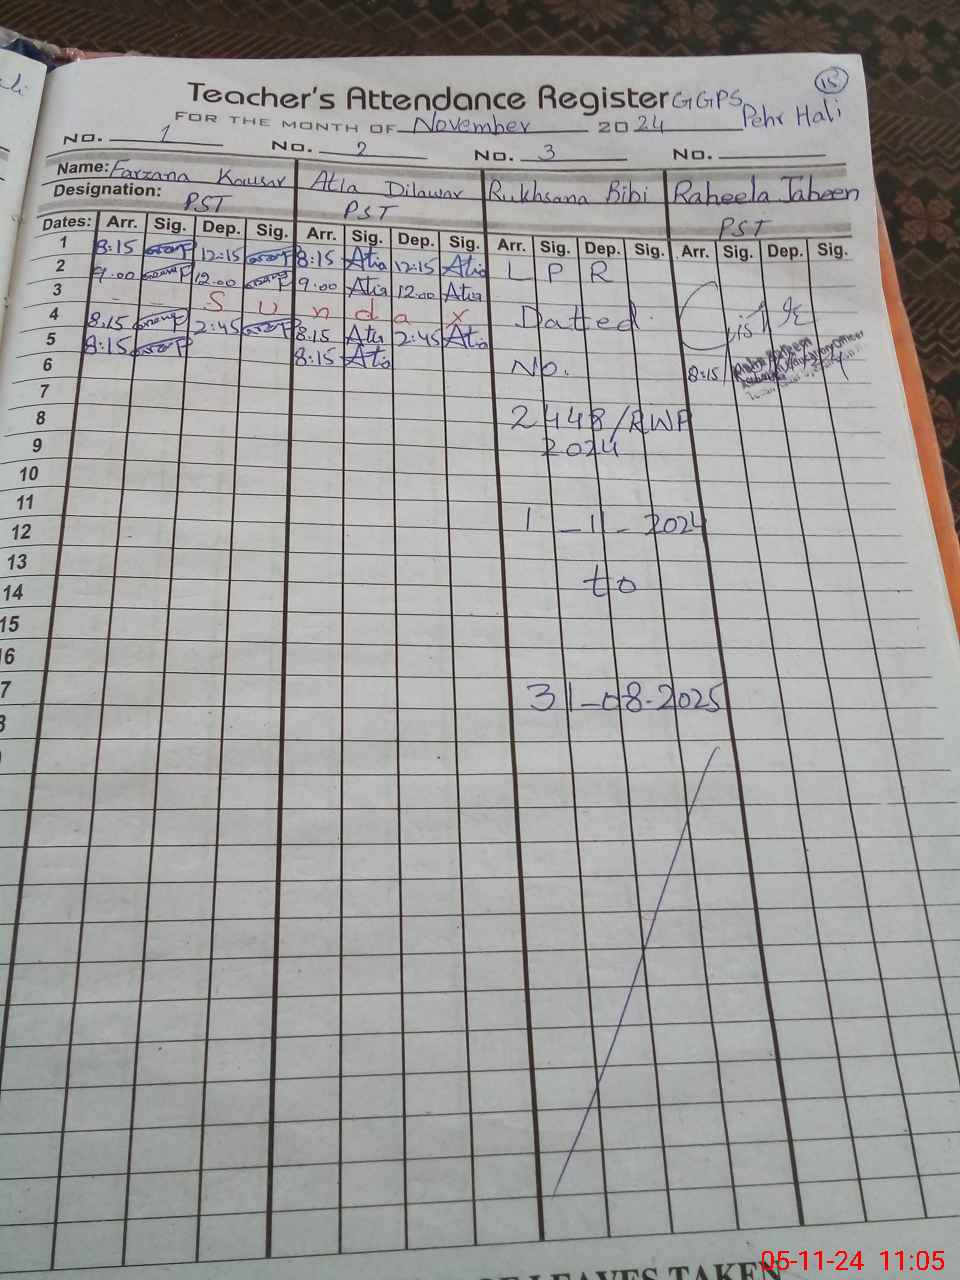 15
Teacher's Attendance Register GGPS
FOR THE MONTH OF November 2024 Pehr Hali
NO. 1 NO. 2 NO. 3 NO.
Name: Farzana Kausar Atia Dilawar Rukhsana Bibi Raheela Jabeen
Designation: PST PST PST
Dates: Arr. Sig. Dep. Sig. Arr. Sig. Dep. Sig. Arr. Sig. Dep. Sig. Arr. Sig. Dep. Sig.
1 8:15 12:15 8:15 Atia 12:15 Atia
2 9:00 12:00 9:00 Atia 12:00 Atia L P R
3 S u n d a y
4 8:15 2:45 8:15 Atia 2:45 Atia Dated.
5 8:15 8:15 Atia
6 No. 8:15
7
8 2448/RWP
9 2024
10
11
12 1-11-2024
13
14 to
15
16
7 31-08-2025
8
OF LEAVES TAKEN
05-11-24 11:05